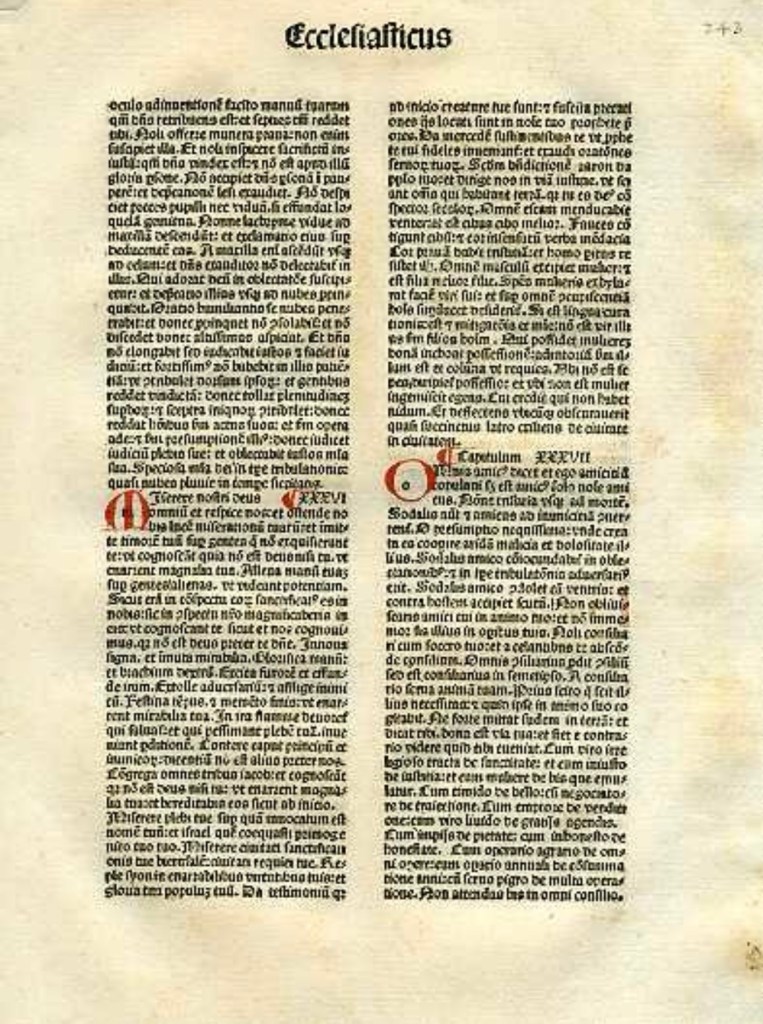 Ecclesiasticus
243
oculo adinuentionē facito manuū tuarum
qm̄ dn̄s retribuens est: et septies tm̄ reddet
tibi. Noli offerre munera praua: non enim
suscipiet illa. Et noli inspicere sacrificiū in
gloria Nō accipiet dn̄s ꝑsonā ī pau
perē: et depcationē lesi exaudiet. Nō despi
ciet preces pupilli: nec viduā: si effundat lo
quelā gemitus. Nonne lachryme vidue ad
maxillā descendūt: et exclamatio eius sup
deducentē eas. A maxilla enī ascēdūt vsq
ad celum: et dn̄s exauditor nō delectabit in
illis. Qui adorat deū in oblectatōe suscipi
etur: et depcatio illius vsq ad nubes ꝓpin
quabit. Oratio humiliantis se nubes pene
trabit: et donec ꝓpinquet nō ꝯsolabit: et nō
discedet donec altissimus aspiciat. Et dn̄s
nō elongabit sed iudicabit iustos ⁊ faciet iu
reddet vindictā: donec tollat plenitudinez
supboꝝ: ⁊ sceptra iniquoꝝ ꝯtribulet: donec
reddat hoībus fm actus suos: et fm opera
ade: ⁊ fm presumptionē illiꝰ: donec iudicet
iudiciū plebis sue: et oblectabit iustos mīa
sua. Speciosa mīa dei in tpe tribulationis:
quasi nubes pluuie in tempe siccitatis.
Miserere nostri deus ¶ XXXVI
omniū et respice nos: et ostende no
bis lucē miserationū tuarū: et imit
te timorē tuū sup gentes q̄ nō exquisierunt
te: vt cognoscāt quia nō est deus nisi tu. vt
enarrent magnalia tua. Alleua manū tuaz
sup gentes alienas. vt videant potentiam.
Sicut eni in cōspectu eoꝝ sanctificatꝰ es in
nobis: sic in ꝯspectu nr̄o magnificaberis in
eis: vt cognoscant te sicut et nos cognoui
mus. qꝛ nō est deus preter te dn̄e. Innoua
signa. et īmuta mirabilia. Glorifica manū:
et brachium dextrū. Excita furorē et effun
de iram. Extolle aduersariū: ⁊ afflige inimi
cū. Festina tēpus. ⁊ memēto finis: vt enar
rent mirabilia tua. In ira flamme deuoret
qui saluat: et qui pessimant plebē tuā. inue
niant ꝑditionē. Contere caput principū et
inimicoꝝ: dicentiū nō est alius preter nos.
Cōgrega omnes tribus iacob: et cognoscāt
qꝛ nō est deus nisi tu: vt enarrent magna
lia tua: et hereditabis eos sicut ab inicio.
Miserere plebi tue sup quā inuocatum est
nomē tuū: et israel quē coequasti primoge
nito tuo. Miserere ciuitati sanctificati
onis tue hierusalē: ciuitati requiei tue. Re
ple syon in enarrabilibus virtutibus tuis: et
gloria tua populuz tuū. Da testimoniū qꝛ
ab inicio creature tue sunt: ⁊ suscita precati
ones q̄s locuti sunt in noīe tuo prophete p̄
ores. Da mercedē sustinentibus te vt ꝓphe
te tui fideles inueniant: et exaudi oratiōnes
seruoꝝ tuoꝝ. Scdm bn̄dictionē aaron da
pplo tuo: et dirige nos in viā iusticie. vt sci
ant oēs qui habitant terrā. qꝛ tu es deꝰ cō
spector seculoꝝ. Omnē escam manducabit
venter: et est cibus cibo melior. Fauces cō
tigunt cibū: ⁊ cor insensatū verba mēdacia
Cor prauū dabit tristitiā: et homo peritus re
sistet illi. Omnē masculū excipiet mulier: ⁊
est filia melior filia. Spēs mulieris exhyla
rat faciē viri sui: et sup omnē ꝯcupiscentiā
hoīs suꝑducit desideriū. Si est lingua cura
tionis: est ⁊ mitigatiōis et mīe: nō est vir illi
us fm filios hoīm. Qui possidet mulierez
bonā inchoat possessionē: adiutoriū fm il
lum est et colūna vt requies. Vbi nō est se
pes, diripiet possessio: et vbi non est mulier
ingemiscit egens. Cui credit qui non habet
nidum. Et deflectens vbicūqꝫ obscurauerit
quasi succinctus latro exiliens de ciuitate
in ciuitatem.
¶ Capitulum XXXVII
Omnis amicꝰ dicet et ego amicitiā
copulaui: sꝫ est amicꝰ solo noīe ami
cus. Nōne tristitia vsqꝫ ad mortē.
Sodalis aūt ⁊ amicus ad inimicitiā ꝯuer
tent. O presumptio nequissima: vnde crea
ta es cooperire aridā malicia et dolositate il
lius. Sodalis amico cōiocundabit in oble
ctationibꝰ: ⁊ in tpe tribulatōnis aduersariꝰ
erit. Sodalis amico ꝯdolet cā ventris: et
contra hostem accipiet scutū. Non obliui
scaris amici tui in animo tuo: et nō imme
mor sis illius in opibus tuis. Noli consilia
ri cum socero tuo: et a zelantibus te abscō
de consilium. Omnis ꝯsiliarius ꝓdit ꝯsiliū
sed est consiliarius in semetipso. A consilia
rio serua animā tuam. Prius scito q̄ sit il
lius necessitas: ⁊ quid ipse in animo suo co
gitabit. Ne forte mittat sudem in terrā: et
dicat tibi. bona est via tua: et stet e contra
rio videre quid tibi eueniat. Cum viro irre
ligioso tracta de sanctitate: et cum iniusto
de iusticia: et cum muliere de his que emu
latur. Cum timido de bello: cū negociato
re de traiectione. Cum emptore de venditi
one: cum viro liuido de gratijs agendis.
Cum impijs de pietate: cum inhonesto de
honestate. Cum operario agrario de om
ni opere: cum opario annuali de cōsumma
tione anni: cū seruo pigro de multa opera
tione. Non attendas his in omni consilio.